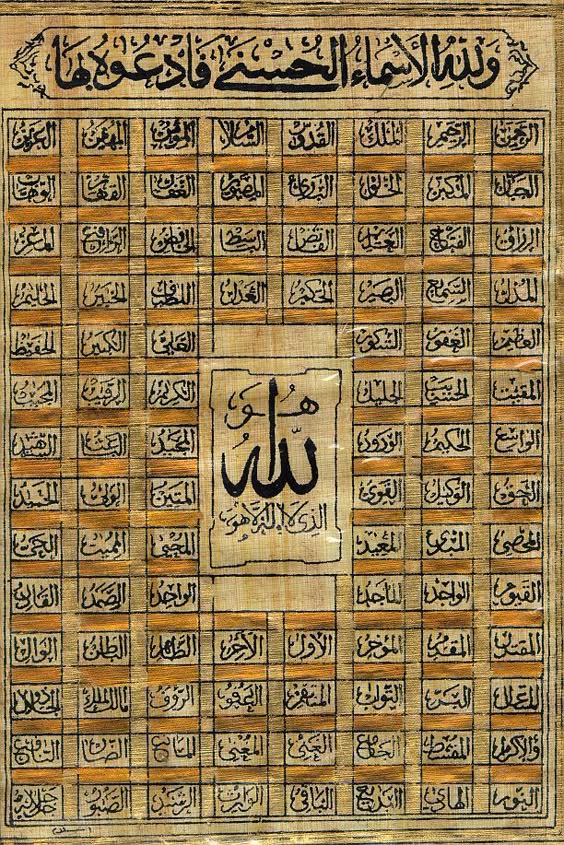 ولله الأسماء الحسنى فادعوه بها
الرحمن الرحيم الملك القدوس السلام المؤمن المهيمن العزيز
الجبار المتكبر الخالق البارئ المصور الغفار القهار الوهاب
الرزاق الفتاح العليم القابض الباسط الخافض الرافع المعز
المذل السميع البصير الحكم العدل اللطيف الخبير الحليم
العظيم الغفور الشكور العلي الكبير الحفيظ
المقيت الحسيب الجليل الكريم الرقيب المجيب
الواسع الحكيم الودود المجيد الباعث الشهيد
الحق الوكيل القوي المتين الولي الحميد
المحصي المبدئ المعيد المحيي المميت الحي
القيوم الواجد الماجد الواحد الصمد القادر
هو
الله
الذي لا إله إلا هو
المقتدر المقدم المؤخر الأول الآخر الظاهر الباطن الوالي
المتعال البر التواب المنتقم العفو الرؤف مالك الملك الجلال
والإكرام المقسط الجامع الغني المغني المانع الضار النافع
النور الهادي البديع الباقي الوارث الرشيد الصبور جل جلاله